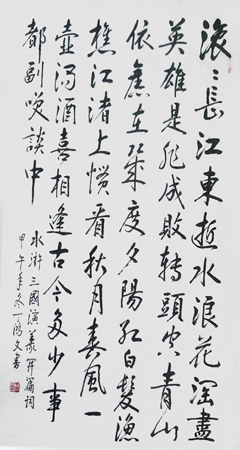 滾〻長江東逝水浪花淘盡
英雄是非成敗轉頭空青山
依舊在幾度夕陽紅白髮漁
樵江渚上慣看秋月春風一
壺濁酒喜相逢古今多少事
都副咲談中
水滸三國演義開篇詞
甲午年冬丁文書